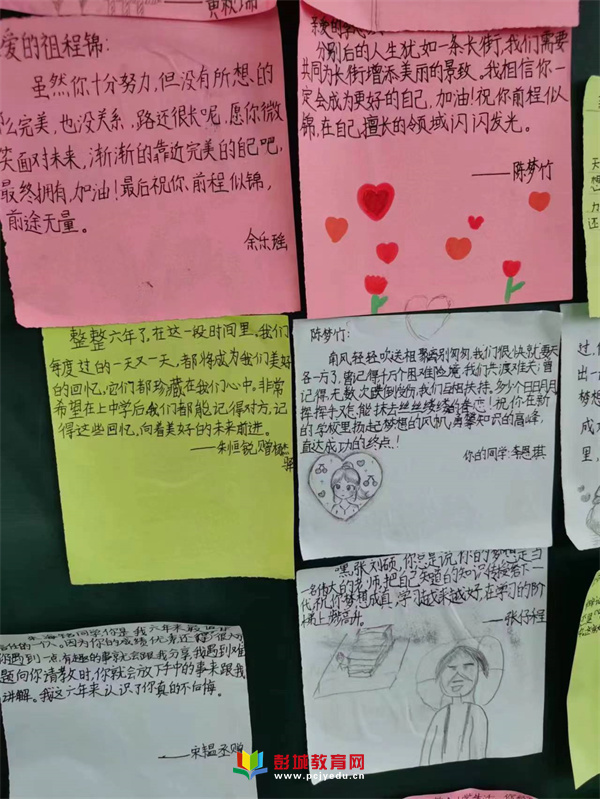 黄秋瑞
爱的祖程锦:
虽然你十分努力,但没有所想的
么完美,也没关系,路还很长呢,愿你微
笑面对未来,渐渐的靠近完美的自己吧,
最终拥有,加油!最后祝你前程似锦,
前途无量。
余乐瑶
分别后的人生犹如一条长街,我们需要
共同为长街增添美丽的景致。我相信你一
定会成为更好的自己,加油!祝你前程似
锦,在自己擅长的领域闪闪发光。
——陈梦竹
整整六年了,在这一段时间里,我们
每度过的一天又一天,都将成为我们美好
的回忆,它们都珍藏在我们心中。非常
希望在上中学后我们都能记得对方,记
得这些回忆,向着美好的未来前进。
——朱恒锐赠
陈梦竹:
南风轻轻吹送,相聚离别匆匆,我们很快就要天
各一方了,曾记得千万个困难险境,我们共渡难关;曾
记得无数次跌倒受伤,我们互相扶持,多少个日日月月
挥挥手难能抹去丝丝缕缕的眷恋!祝你在新
的学校里扬起梦想的风帆,勇攀知识的高峰,
直达成功的终点!
你的同学:李恩琪
嘿,张刘硕,你总是说,你的梦想是当
一名伟大的老师,把自己知道的知识传授给下一
代,祝你梦想成真,学习越来越好,在学习的阶
梯上步步高升。
——张仔程
同学你是我六年来最
信任的一个人。因为你的成绩优秀还
遇到一点有趣的事就会跟我分享,我遇到难
题向你请教时,你就会放下手中的事来跟我
讲解。我这六年来认识了你真的不后悔。
——宋韫丞赠
彭城教育网
www.pcjyedu.cn